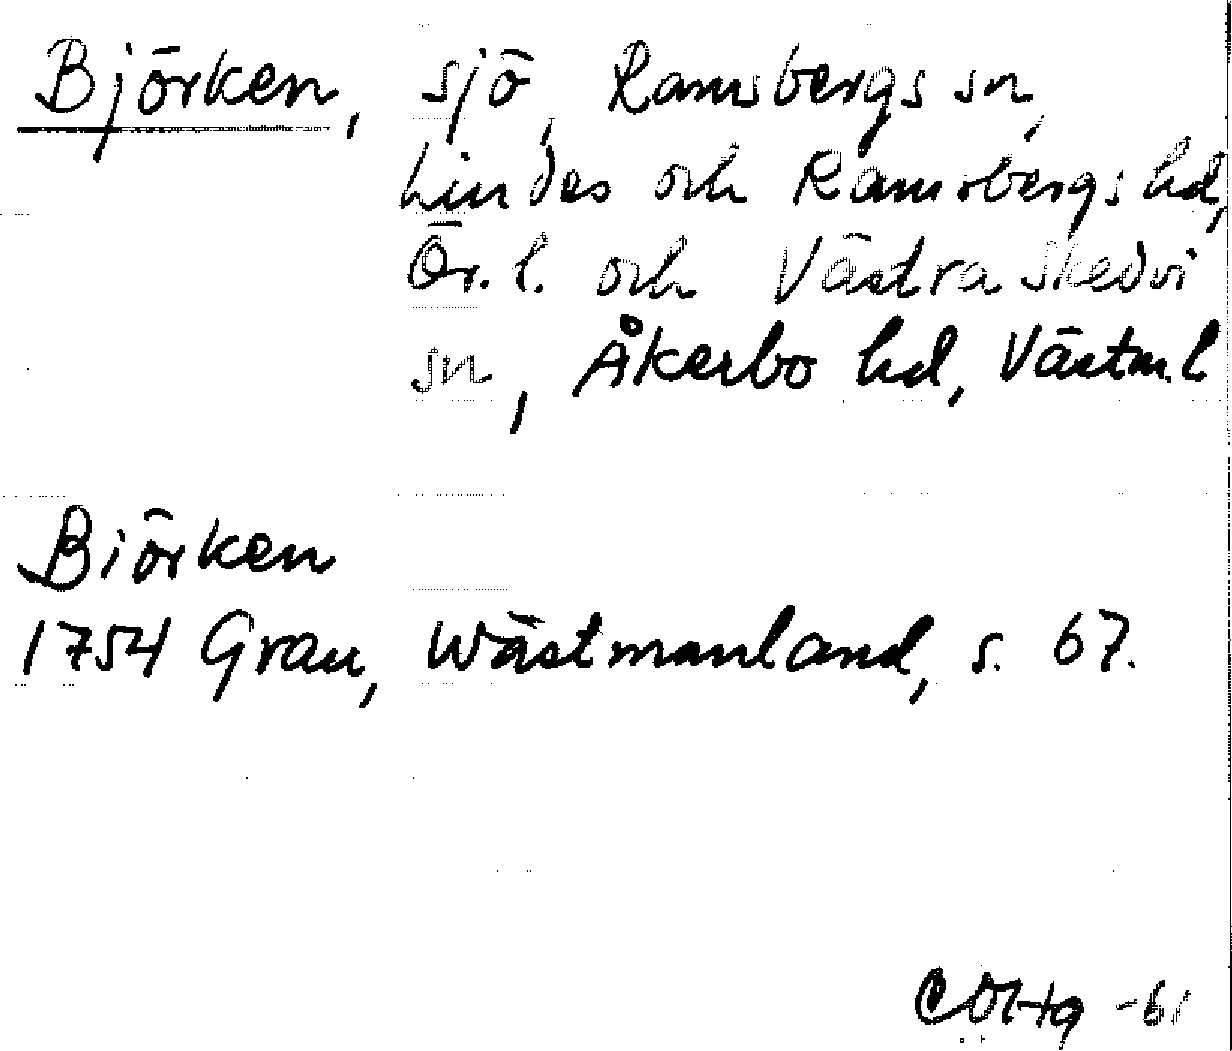 Björken, sjö, Ramsbergs sn,
Lindes och Ramsbergs hd,
Ör. l. och Västra Skedvi
sn, Åkerbo hd, Västm. l
Biörken
1754 Grau, Wästmanland, s. 67.
-61